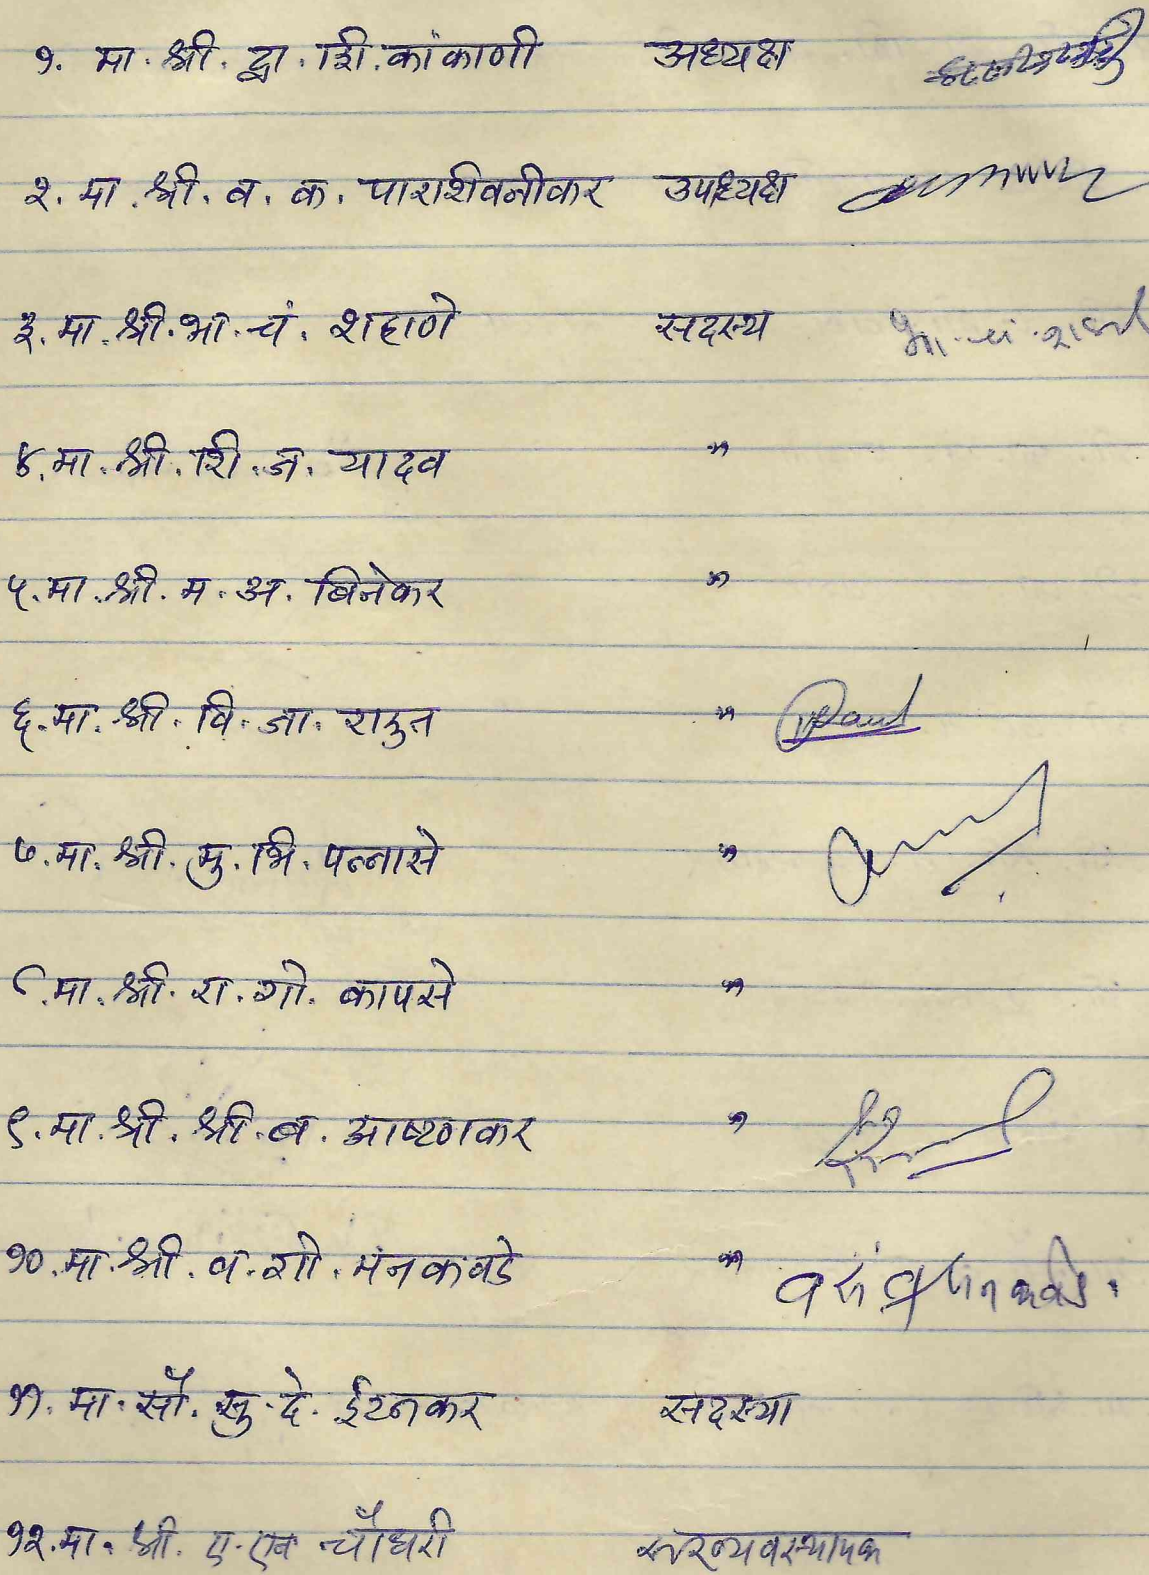 १. मा. श्री. द्वा. शि. कांकाणी अध्यक्ष
२. मा. श्री. व. क. पाराशिवनीकर उपध्यक्ष
३. मा. श्री. भा. चं. शहाणे सदस्य भा. चं. शहाणे
४. मा. श्री. शि. ज. यादव "
५. मा. श्री. म. अ. बिनेकर "
६. मा. श्री. वि. जा. राऊत "
७. मा. श्री. मु. भि. पन्नासे "
८. मा. श्री. रा. गो. कापसे "
९. मा. श्री. श्री. ब. आष्टणकर "
१०. मा. श्री. व. गो. मनकवडे "
११. मा. सौ. सु. दे. ईटनकर सदस्या
१२. मा. श्री. ए. एन चौधरी